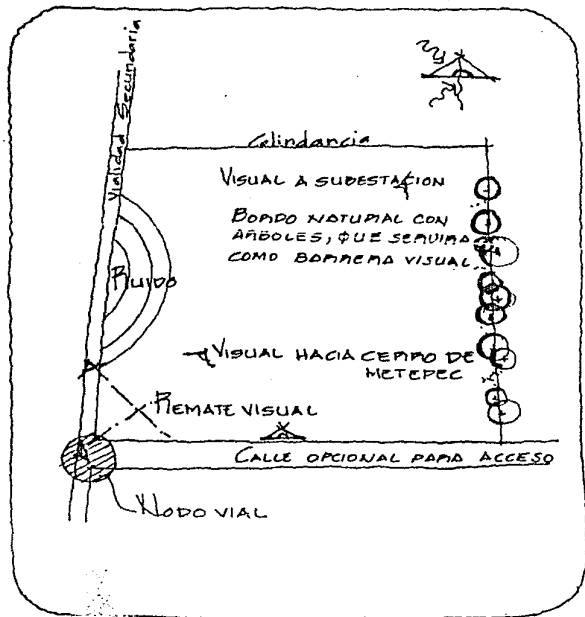 Vialidad Secundaria
Colindancia
VISUAL A SUBESTACION
BORDO NATURAL CON
ARBOLES, QUE SERVIRA
COMO BARRERA VISUAL
RUIDO
VISUAL HACIA CERRO DE
METEPEC
REMATE VISUAL
CALLE OPCIONAL PARA ACCESO
NODO VIAL